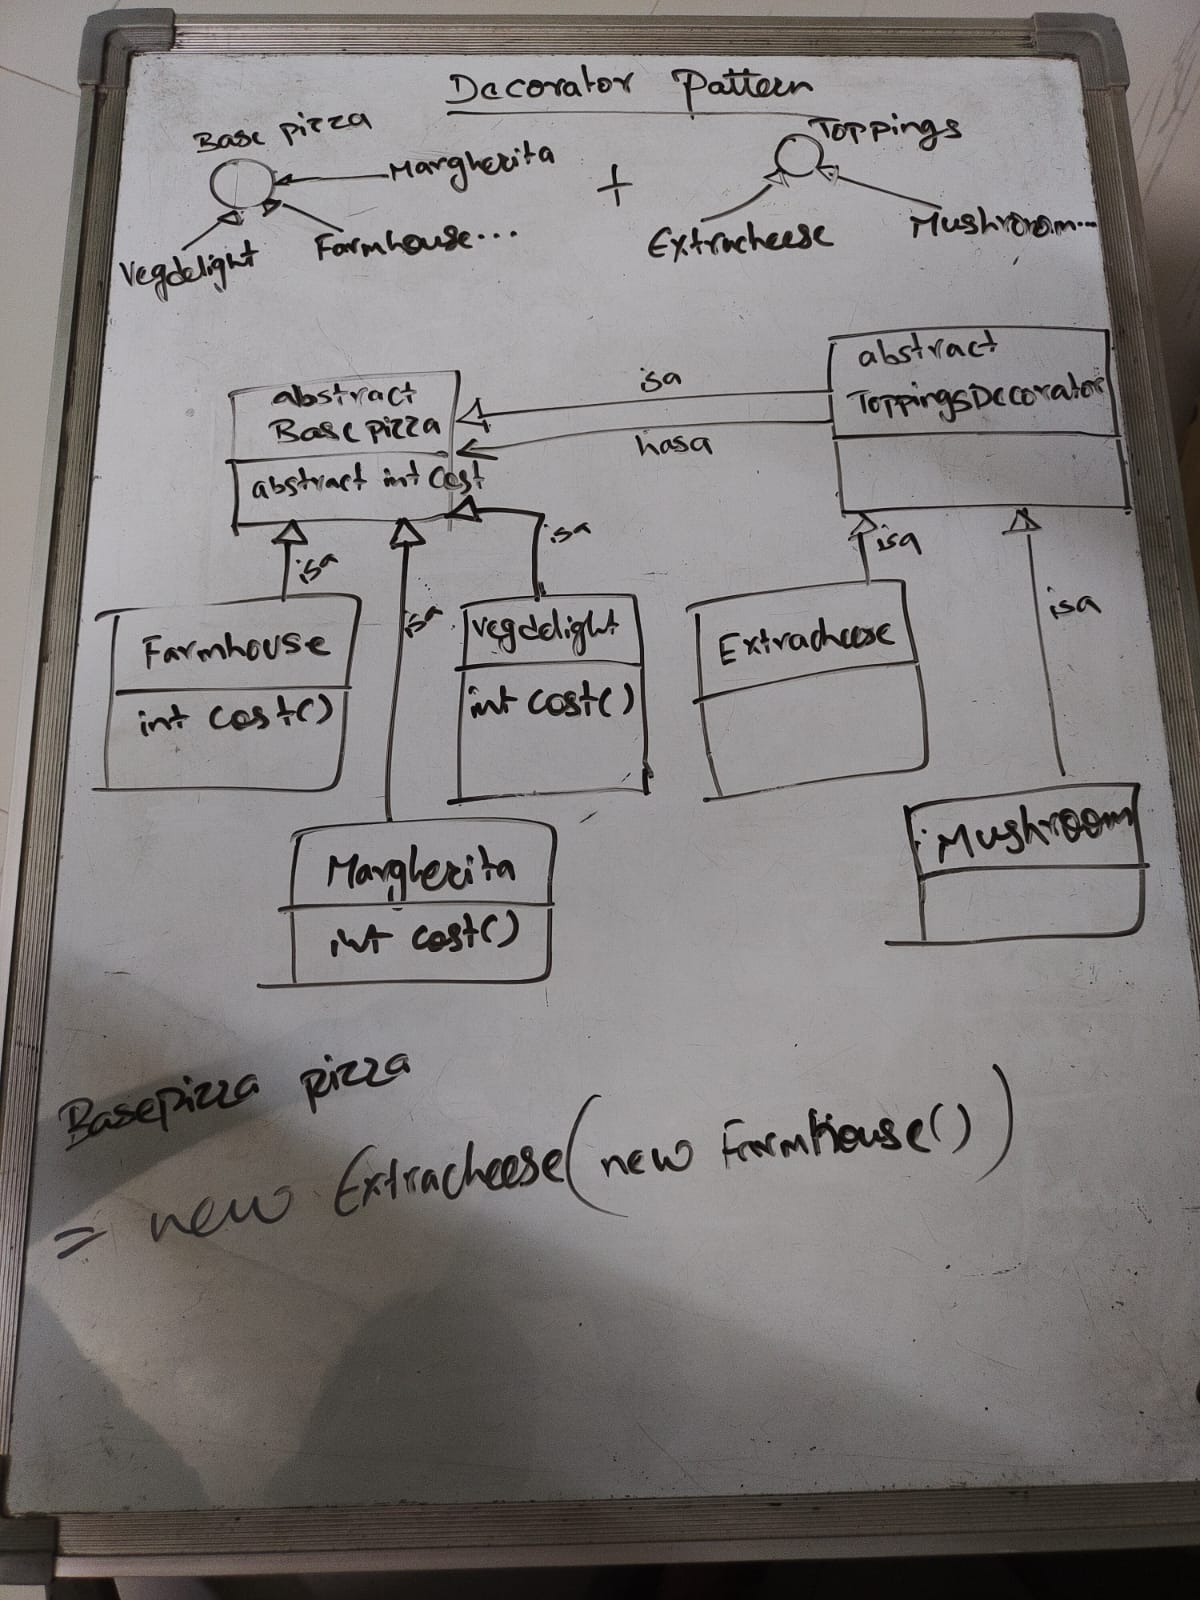 Decorator Pattern
Base pizza
Margherita
Vegdelight
Farmhouse...
+
Toppings
Extracheese
Mushroom...
abstract
Base pizza
abstract int Cost
isa
hasa
abstract
ToppingsDecorator
isa
isa
isa
isa
isa
Farmhouse
int Cost()
Vegdelight
int Cost()
Extracheese
Margherita
int cost()
Mushroom
Basepizza pizza
= new Extracheese(new FarmHouse())